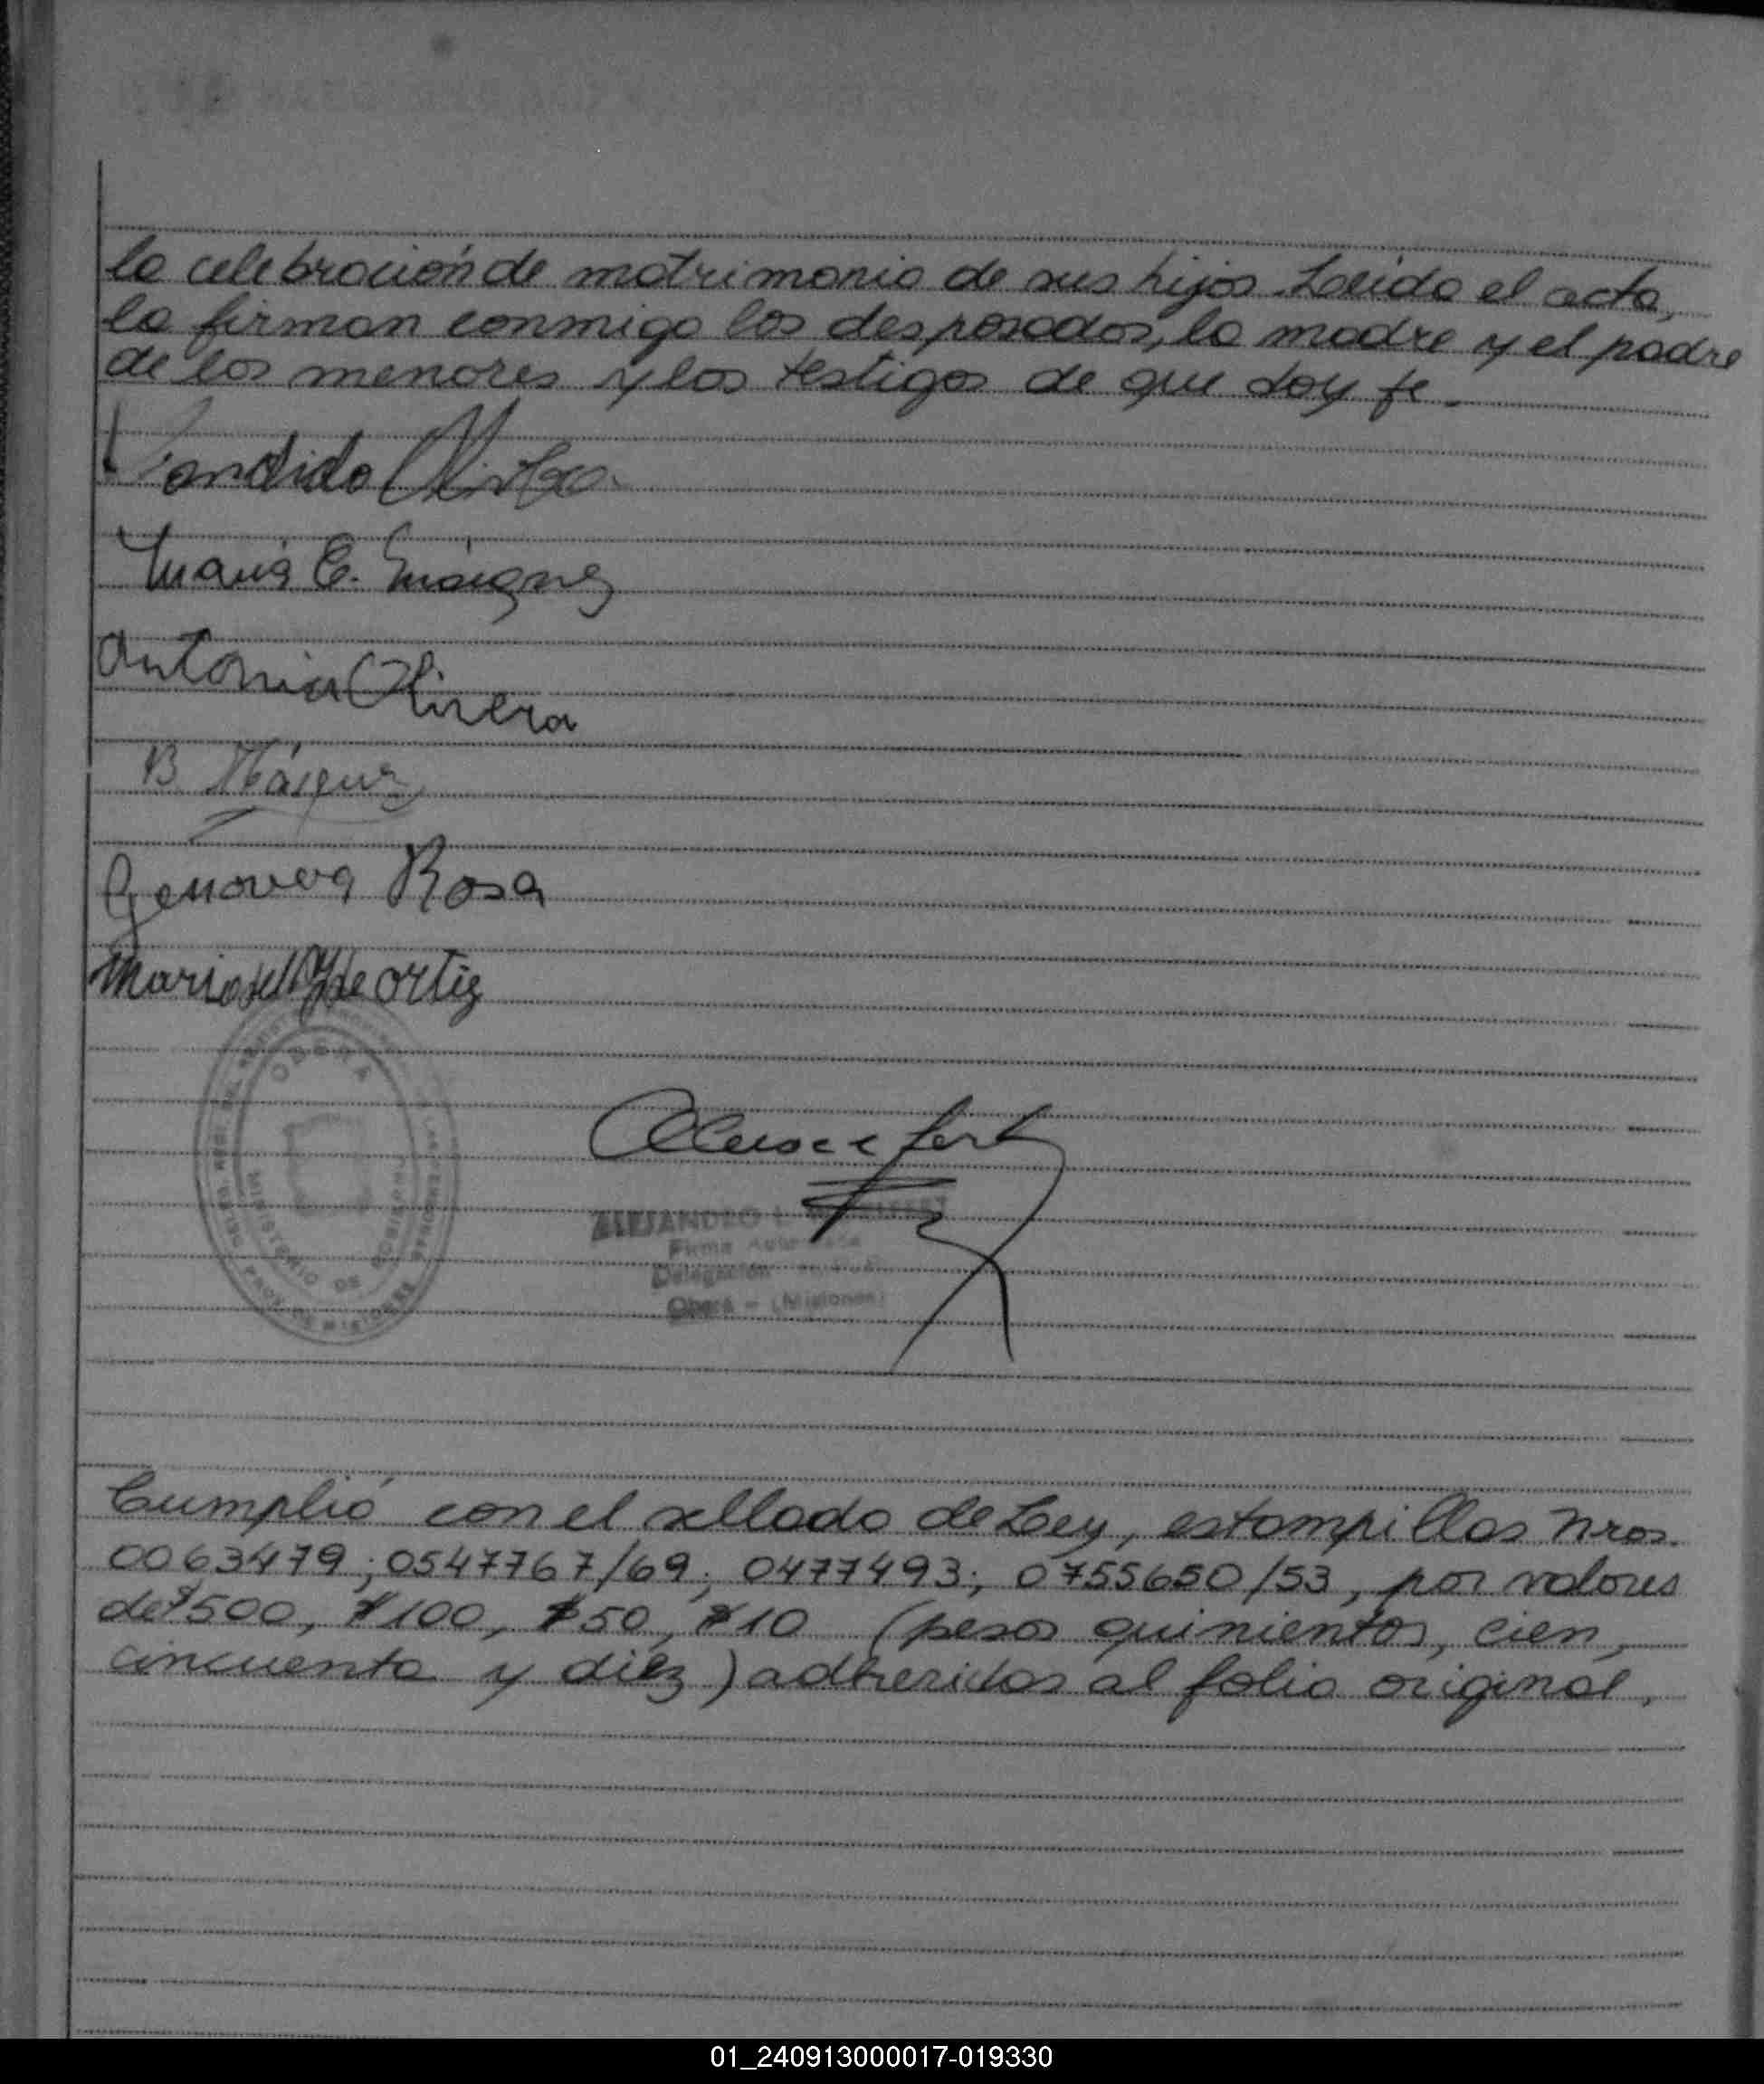 la celebración de matrimonio de sus hijos. Leída el acta,
la firman conmigo los desposados, la madre y el padre
de los menores y los testigos de que doy fe.
Candido
Maria C.
Antonia Olivera
B.
Genoveva Rosa
de Ortiz
OBERA
MINISTERIO DE GOBIERNO
PROV. DE MISIONES
ALEJANDRO
Firma
Delegación
Oberá - (Misiones)
Cumplió con el sellado de Ley, estampillas Nros.
0063479; 0547767/69; 0477493; 0755650/53, por valores
de $500, $100, $50, $10 (pesos quinientos, cien,
cincuenta y diez) adheridos al folio original.
01_240913000017-019330